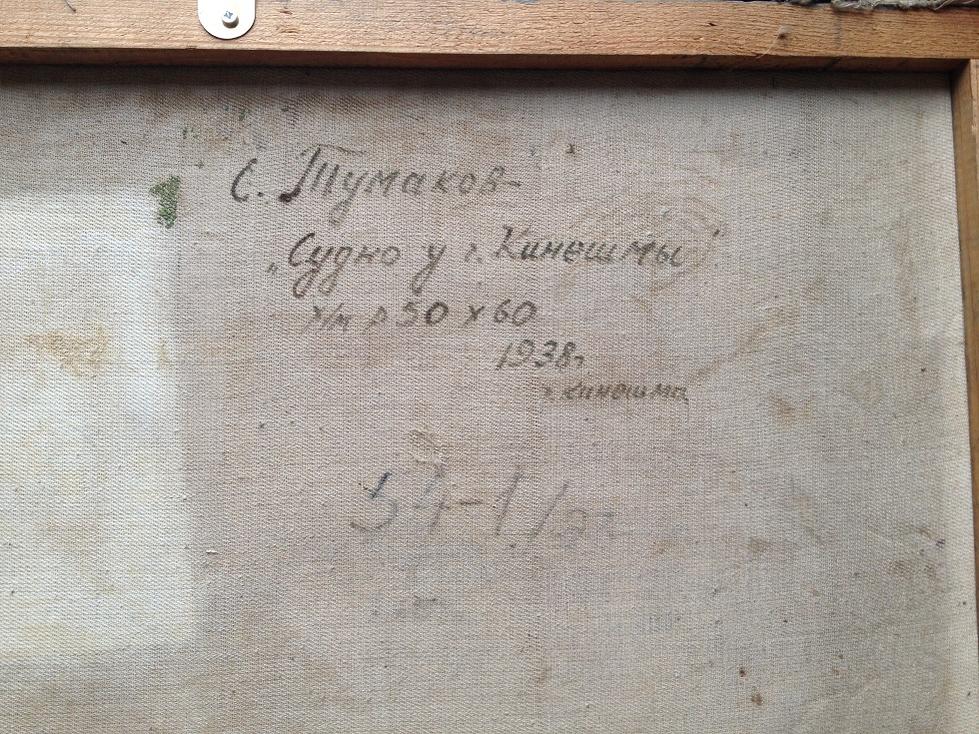 С. Тумаков-
„Судно у г. Кинешмы"
х/м р 50 х 60
1938г
г. Кинешма
54-1/